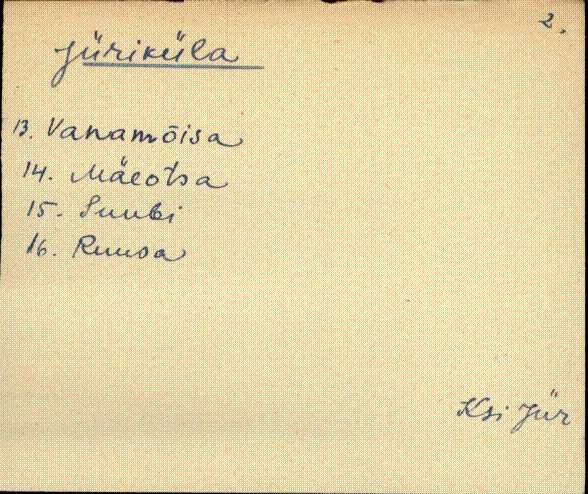 2.
Jüriküla
13. Vanamõisa
14. Mäeotsa
15. Suubi
16. Ruusa
Ksi Jür